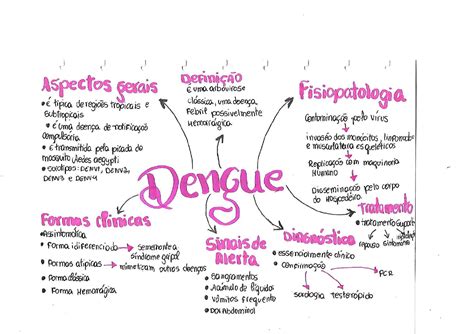 Dengue
Aspectos gerais
• é típica de regiões tropicais e
subtropicais
• é uma doença de notificação
compulsória
• é transmitida pela picada do
mosquito Aedes aegypti
• sorotipos: DENV1, DENV2,
DENV3 e DENV4
Definição
é uma arbovirose
clássica, uma doença
febril possivelmente
hemorrágica
Fisiopatologia
Contaminação pelo vírus
invasão dos monócitos,
e musculatura esqueléticos
Replicação com maquinaria
Humano
Disseminação pelo corpo
do hospedeiro
Tratamento
• tratamento
repouso
Formas clínicas
• Assintomática
• Forma indiferenciada → semelhante a
síndrome gripal
• Formas atípicas → mimetizam outras doenças
• Forma clássica
• Forma Hemorrágica
Sinais de
Alerta
• Sangramentos
• Acúmulo de líquidos
• Vômitos frequente
• Dor Abdominal
Diagnóstico
• essencialmente clínico
• confirmação → PCR
sorologia teste rápido